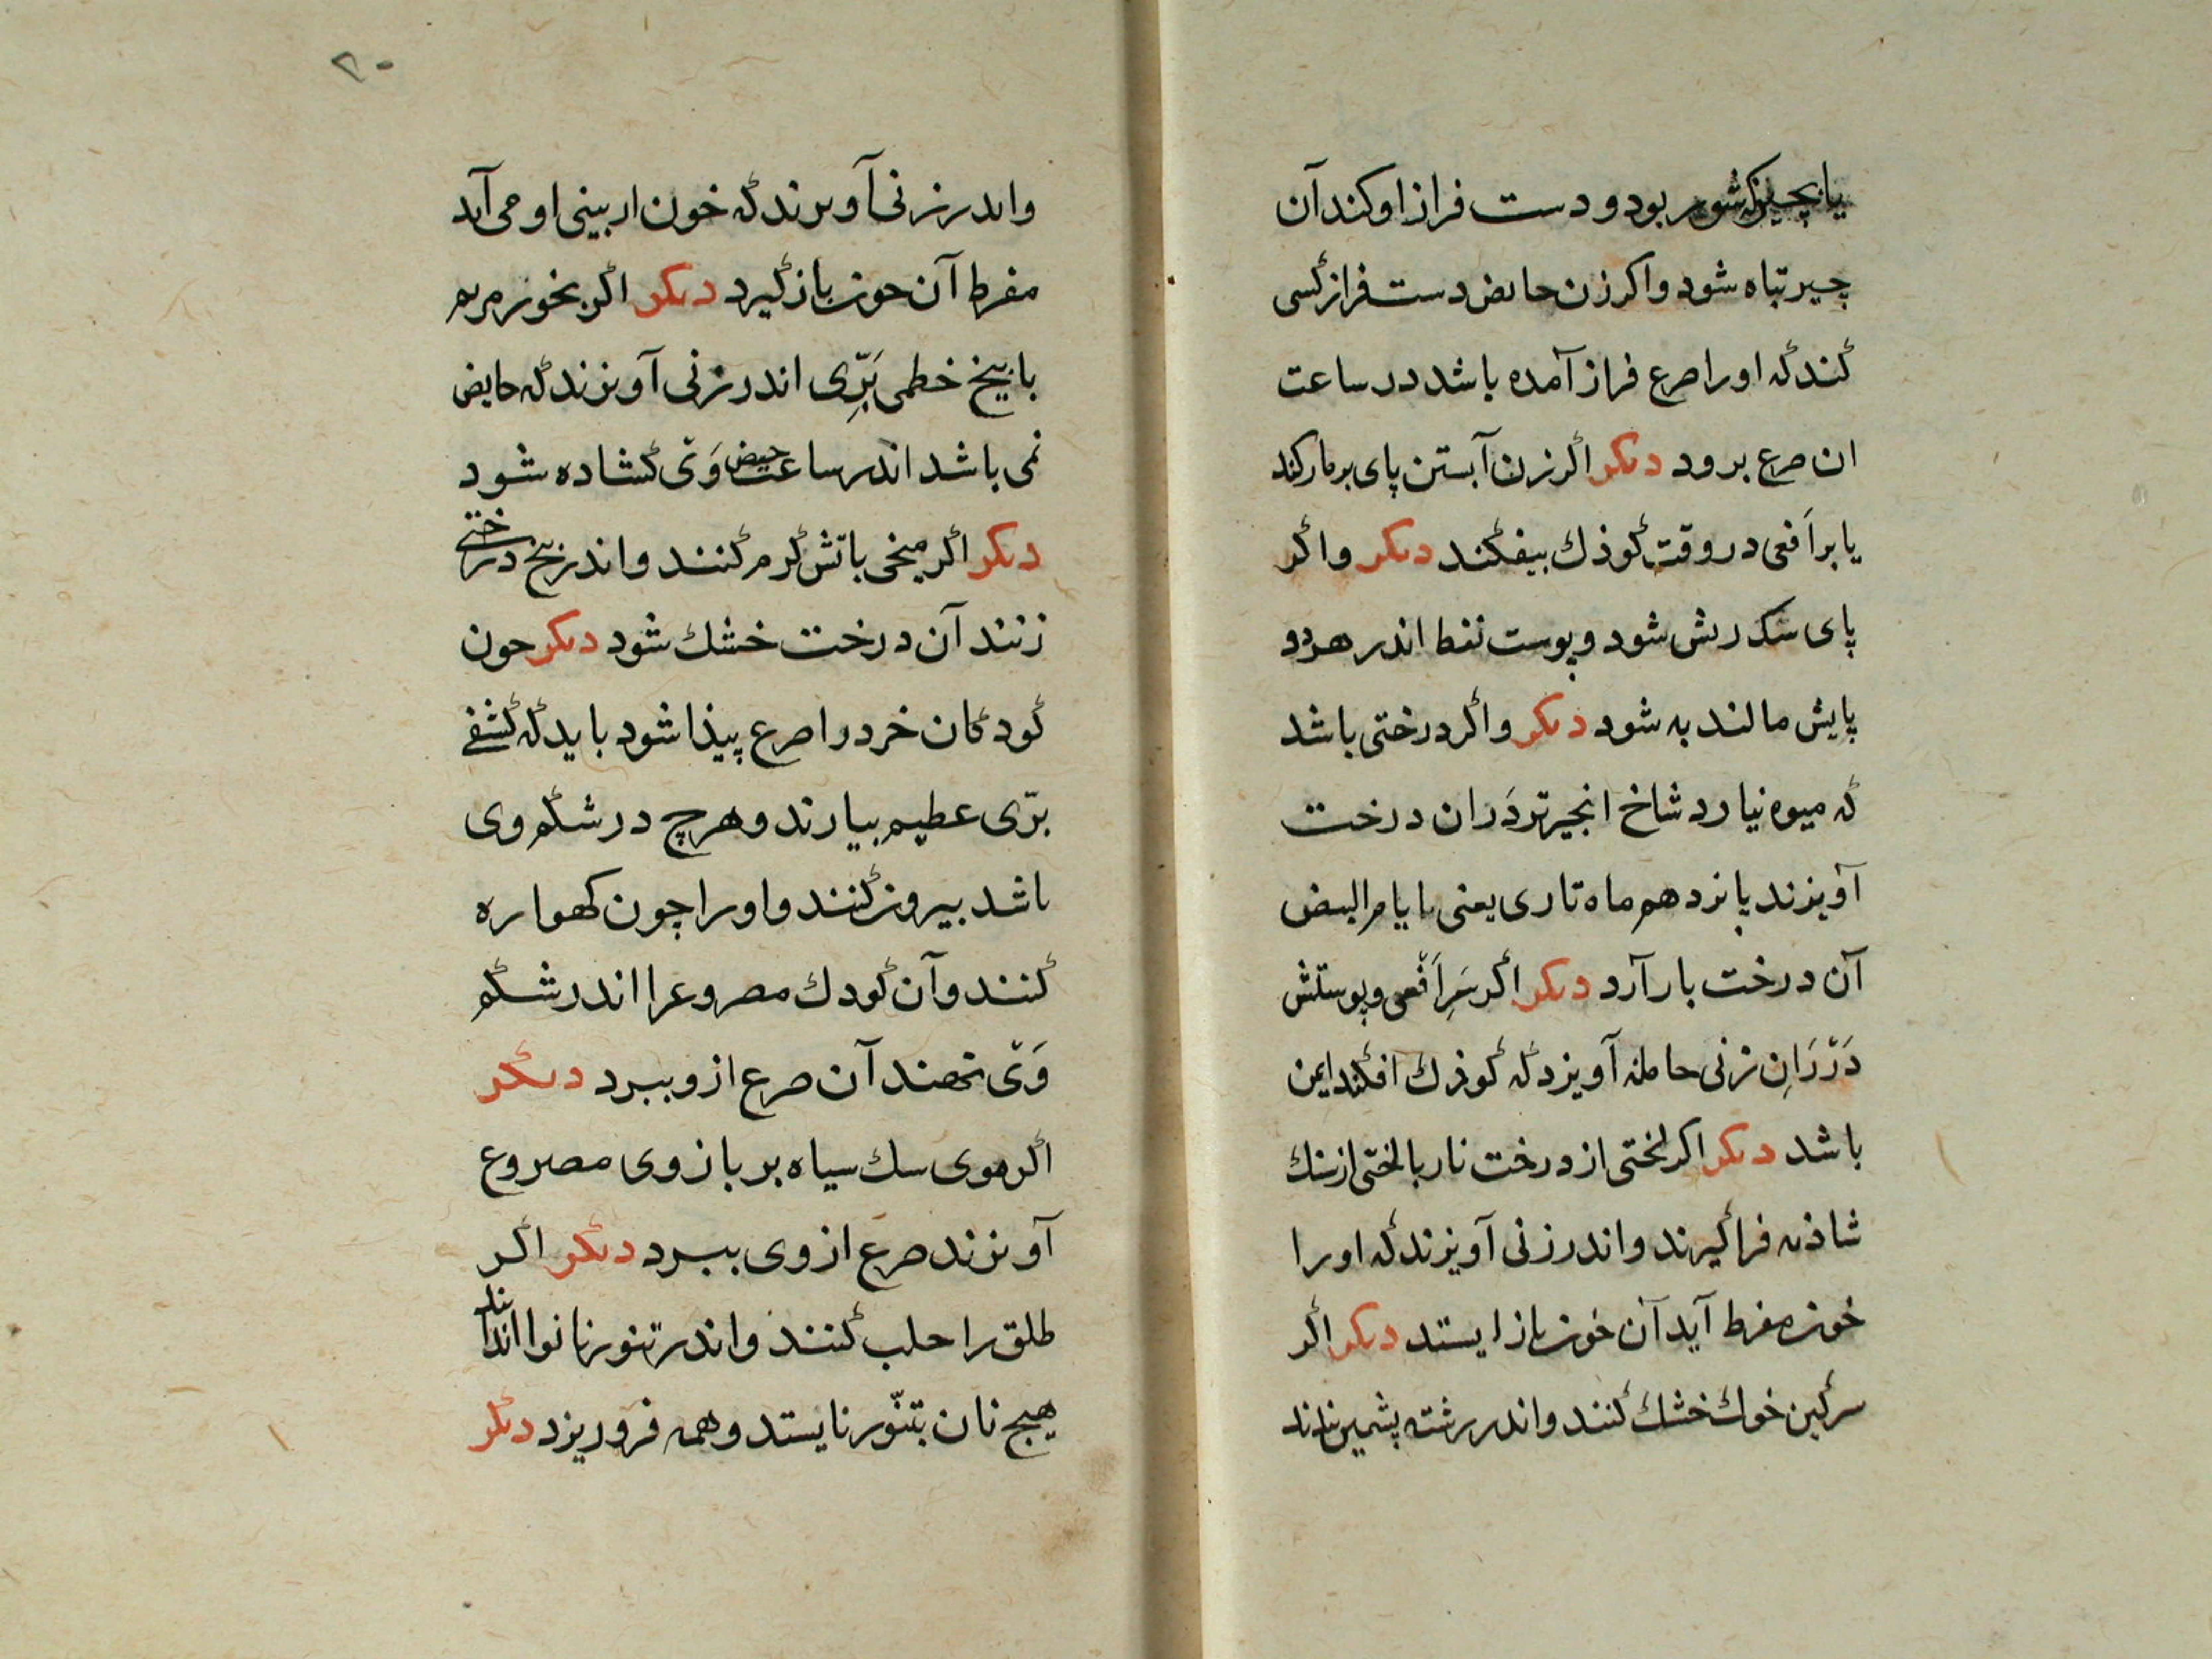 یا بچیزکه شور بود و دست فراز او کند آن
چیر تباه شود و اکر زن حایض دست فراز کسی
کند که او را صرع فراز آمده باشد در ساعت
ان صرع برود دیکر اکر زن آبستن پای بر مار کند
یا بر اَفعی در وقت کوذك بیفکند دیکر و اکر
پای سک ریش شود و پوست نفط اندر هر دو
پایش مالند به شود دیکر و اکر درختی باشد
که میوه نیارد شاخ انجیر تر دَران درخت
آویزند پانزدهم ماه تازی یعنی بایام البیض
آن درخت بار آرد دیکر اکر سَرِ اَفعی و پوستش
دَر رَانِ زنی حامله آویزد که کوذك افکند ایمن
باشد دیکر اکر لختی از درخت نار با لختی از سنك
شاذنه فرا کیرند و اندر زنی آویزند که او را
خون مفرط آید آن خون باز ایستد دیکر اکر
سرکین خوك خشك کنند و اندر رشته پشمین
۲۰
و اندر زنی آویزند که خون از بینی او می آید
مفرط آن خون باز کیرد دیکر اکر بخور مریم
با بیخ خطمی بَرِّی اندر زنی آویزند که حایض
نمی باشد اندر ساعت حیض وَیْ کشاده شود
دیکر اکر میخی باتش کرم کنند و اندر بیخ درختی
زنند آن درخت خشك شود دیکر چون
کودکان خرد را صرع پیذا شود باید که کشفی
برّی عظیم بیارند و هرچ در شکم وی
باشد بیرون کنند و او را چون کهواره
کنند و آن کودك مصروع را اندر شکم
وَیْ نهند آن صرع ازو ببرد دیکر
اکر موی سك سیاه بر بازوی مصروع
آویزند صرع از وی ببرد دیکر اکر
طلق را حلب کنند و اندر تنور نانوا اندایند
هیچ نان بتنّور نایستد و همه فرو ریزد دیکر